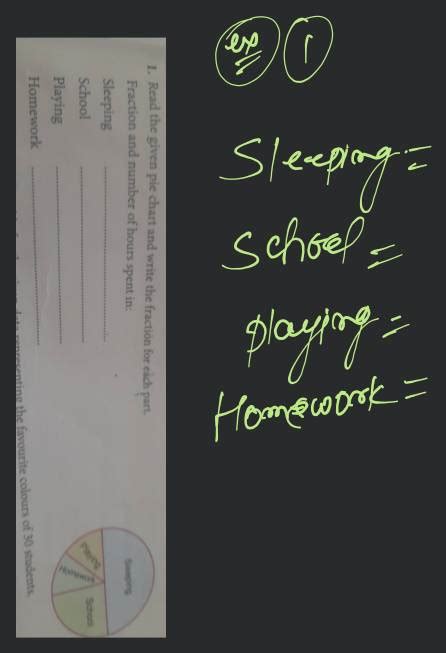 1. Read the given pie chart and write the fraction for each part.
Fraction and number of hours spent in:
Sleeping
School
Playing
Homework
representing the favourite colours of 30 students.
Sleeping
Playing
Homework
School
ex 1
Sleeping =
School =
Playing =
Homework =